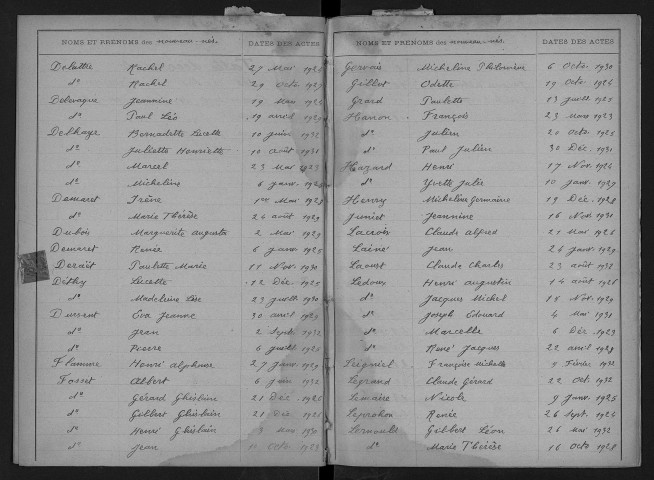 NOMS ET PRENOMS des nouveau-nés. DATES DES ACTES
Delattre Rachel 27 Mai
d° Rachel 29 Octo
Delevaque Jeannine 19 Mars
d° Paul Léo 19 avril
Delhaye Bernadette Lucette 10 juin 1932
d° Juliette Henriette 10 août 1931
d° Marcel 23 Mai 1923
d° Micheline 6 janv.
Demaret Irène 1er Mai
d° Marie Thérèse 26 août 1929
Dubois Marguerite augusta 2 Mai 1929
Demaret Renée 6 janv 1925
Paulette Marie 11 Nov. 1930
Déthy Lucette 12 Déc 1925
d° Madeleine 23 juillet 1930
Dussent Eva Jeanne 30 avril 1929
d° Jean 2 Sept. 1932
d° Pierre 6 juillet
Flamme Henri alphonse 27 janv 1929
Fosset Albert 6 juin 1932
d° Gérard Ghislain 21 Déc 1926
d° Gilbert Ghislain 21 Déc 1926
d° Henri Ghislain Mai 1930
d° Jean Octo 1923
NOMS ET PRENOMS des nouveau-nés. DATES DES ACTES
Gervais Micheline Philomène 6 Octo 1930
Gillot Odette 19 Octo 1924
Grard Paulette 13 juillet
Hanon François 23 Mars 1923
d° Julien 20 Octo
d° Paul Julien 30 Déc. 1931
Hazard Henri 17 Nov. 1924
d° Yvette Julie 10 janv. 1929
Henry Micheline Germaine 19 Déc.
Juniet Jeannine 16 Nov. 1931
Lacroix Claude alfred 21 Mai 1926
Lainé Jean 26 janv 1929
Laoust Claude Charles 23 août 1932
Ledoux Henri augustin 14 août
d° Jacques Michel 18 Nov. 1929
d° Joseph Edouard 4 Mai 1931
d° Marcelle 6 Déc 1923
d° René Jacques 22 avril
Françoise Michelle 9 Février 1932
Legrand Claude Gérard 22 Oct. 1932
Lemaire Nicole 9 janv 1925
Leprohon Renée 26 Sept. 1924
Lernould Gilbert Léon 26 Mai 1932
d° Marie Thérèse 16 Octo 1928